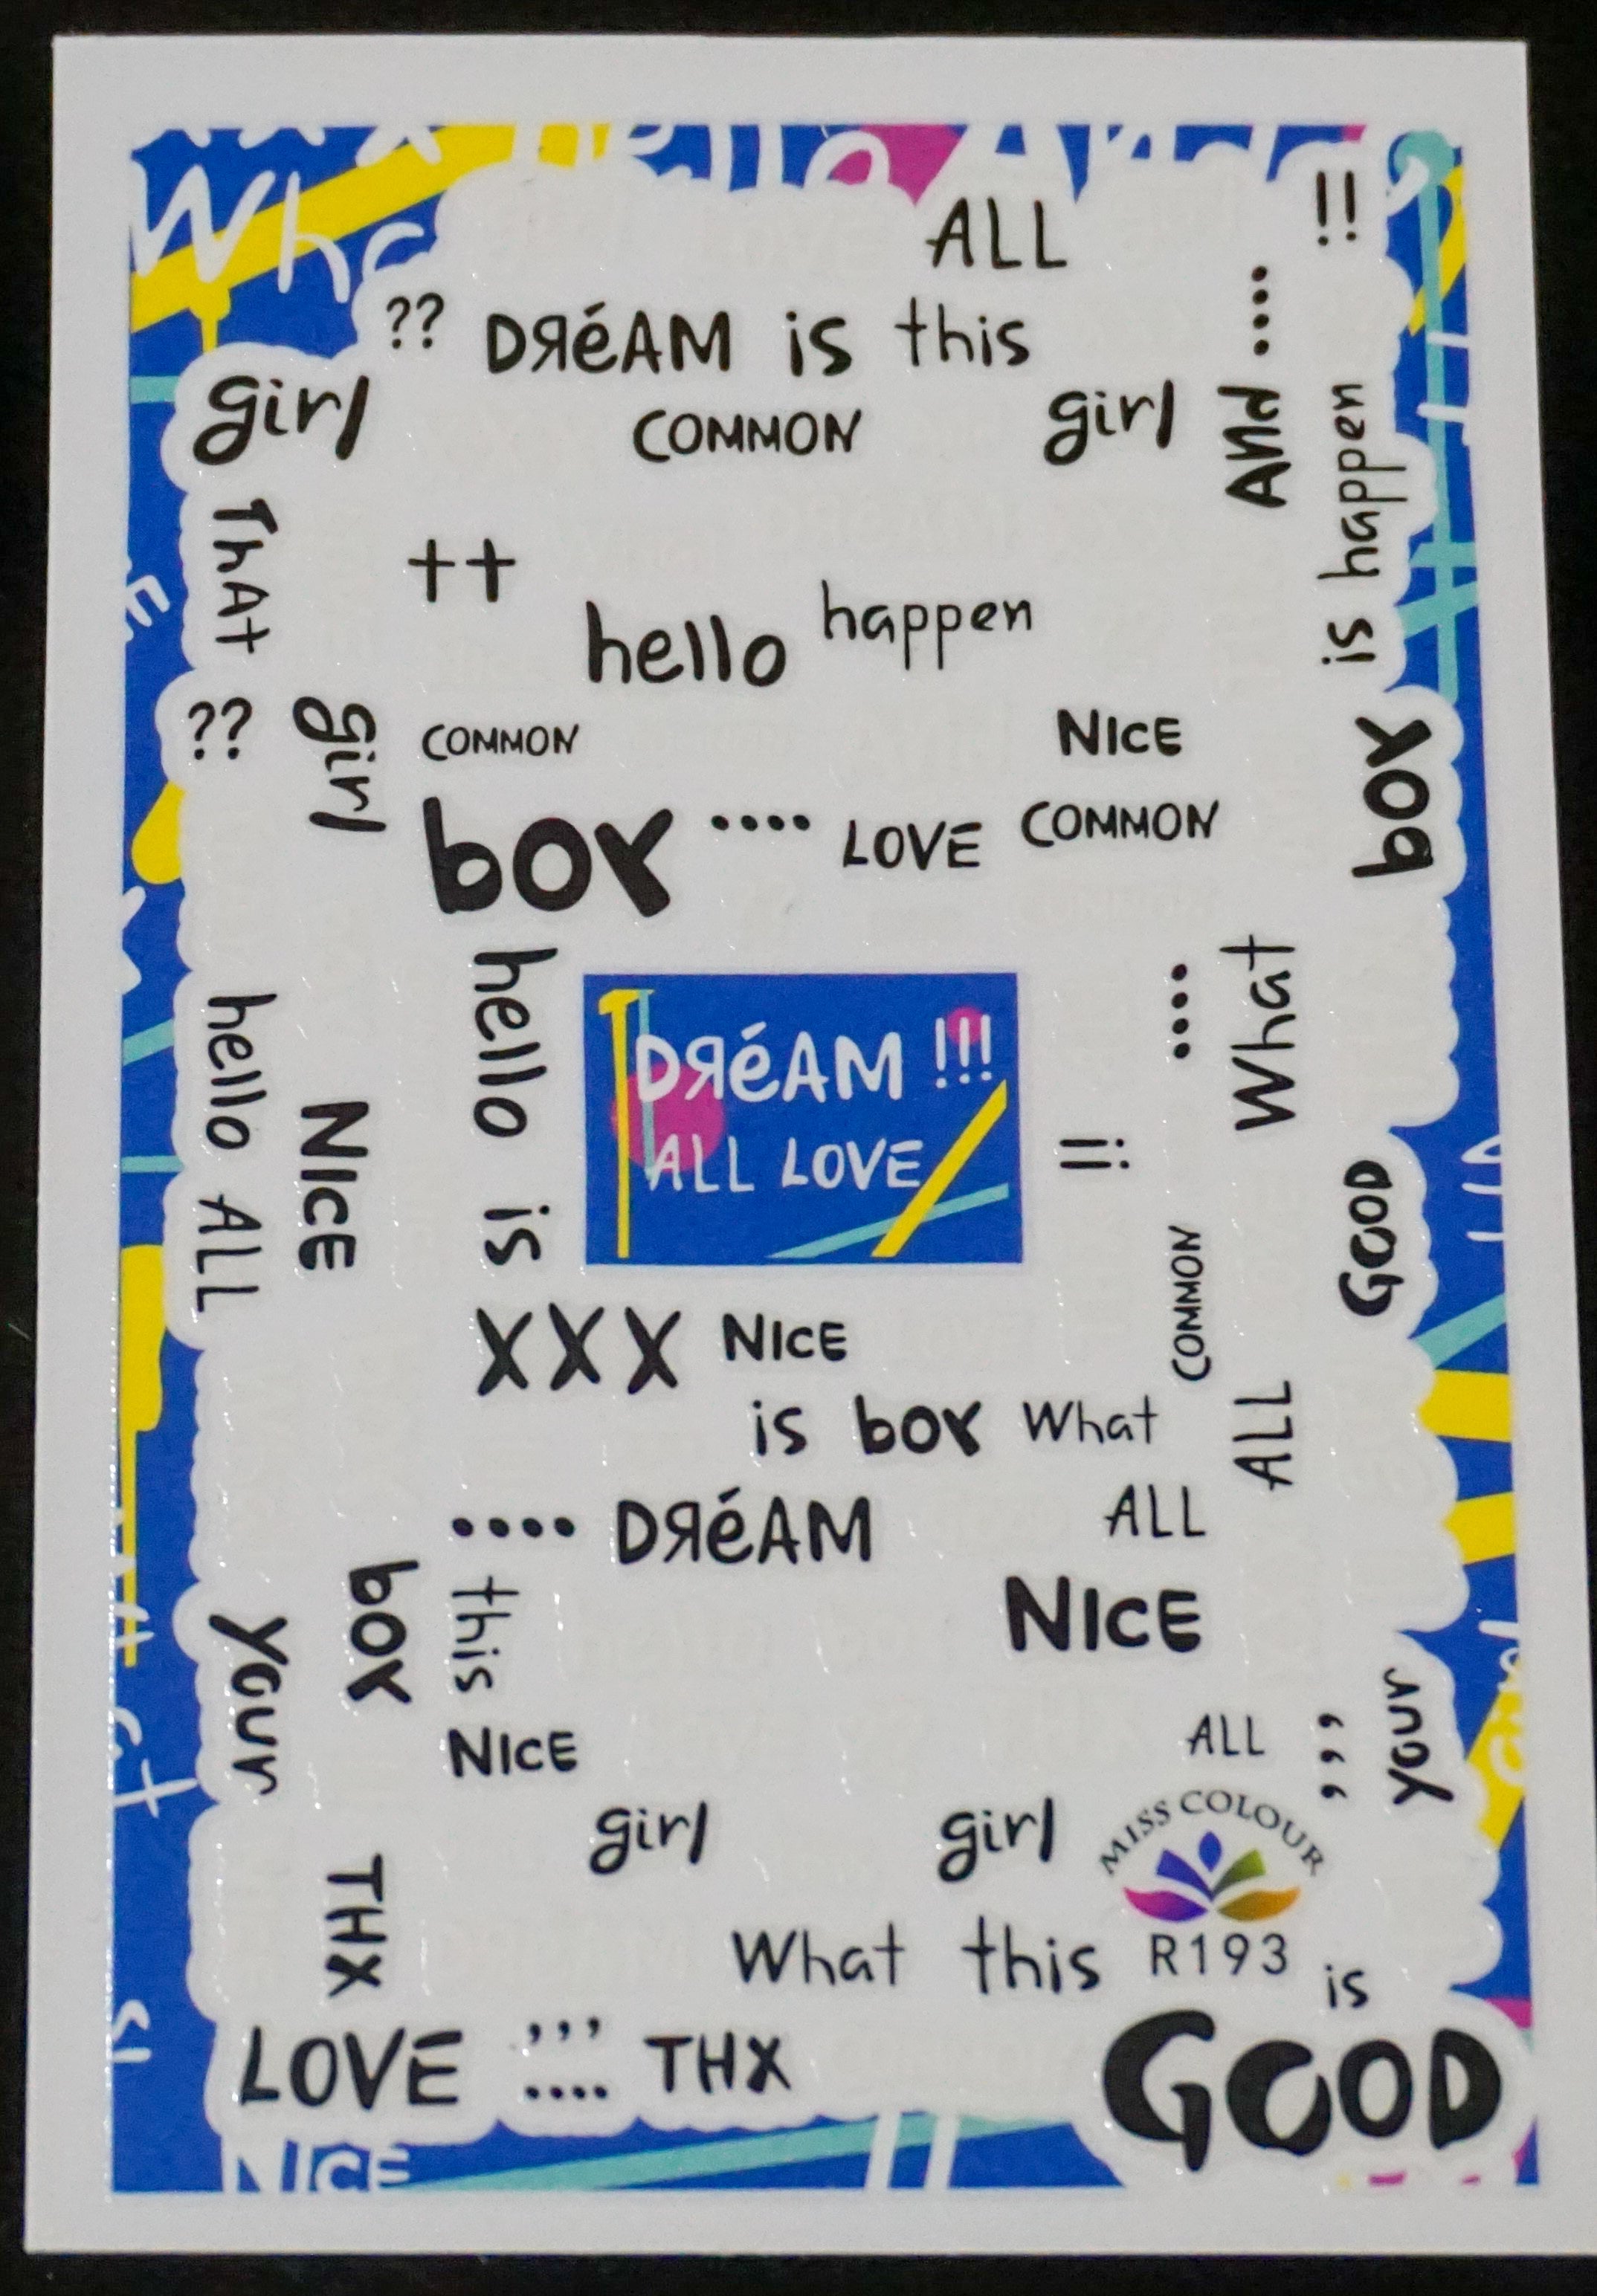 What
ALL
!!
?? DЯéAM is this
girl
COMMON
girl
And ....
is happen
ThAt
++
hello happen
?? girl
COMMON
NICE
boy
boy .... LOVE COMMON
hello is
....
What
DЯéAM !!!
ALL LOVE
hello ALL
NICE
!!
GOOD
COMMON
XXX NICE
ALL
is boy What
.... DЯéAM
ALL
boy
this
NICE
Your
NICE
ALL
,,,
Your
girl
girl
MISS COLOUR
THX
What this R193 is
LOVE ,,, .... THX
GOOD
NICE